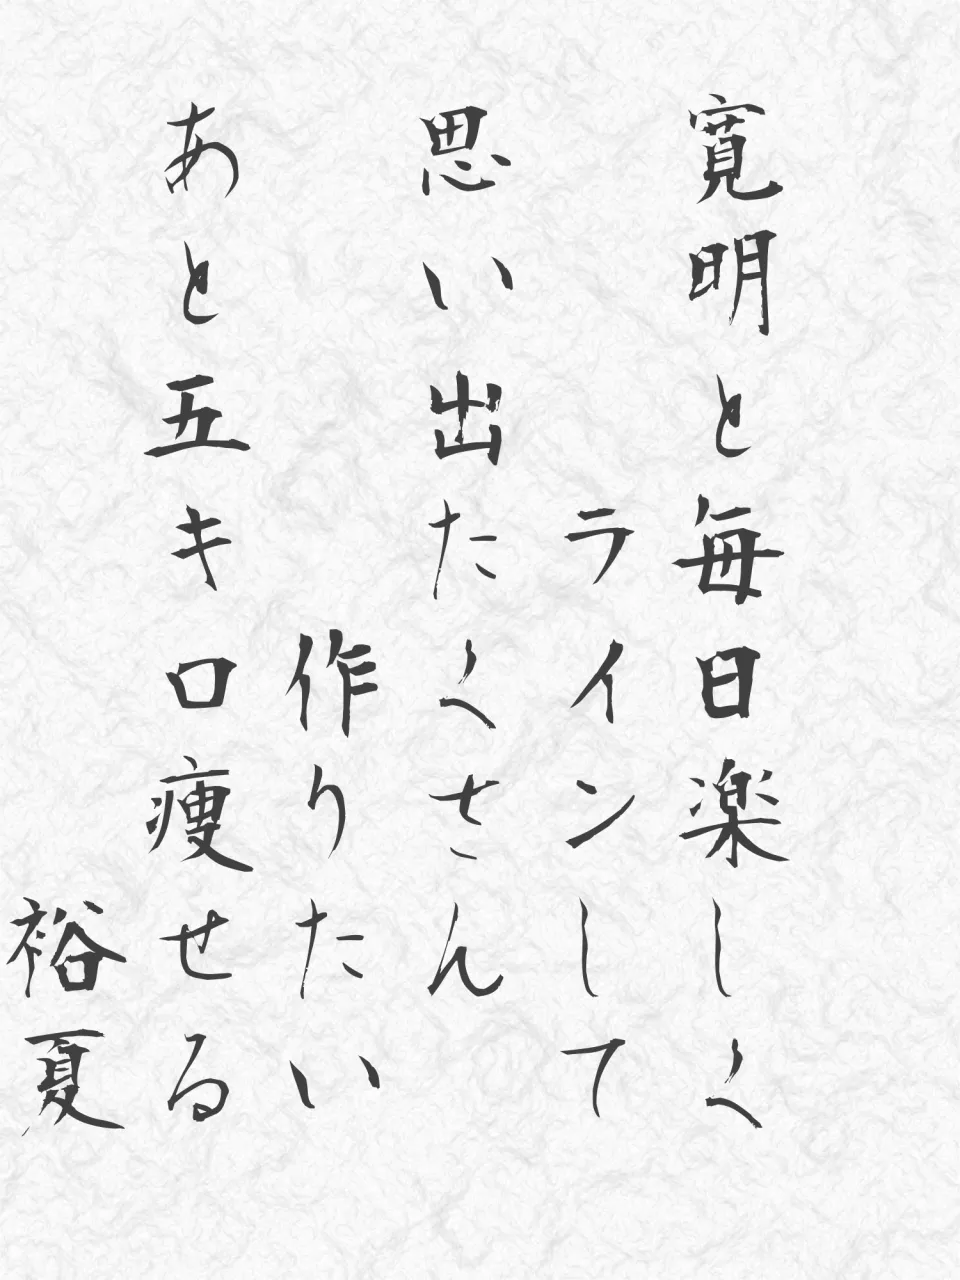 寛明と毎日楽しく
ラインして
思い出たくさん
作りたい
あと五キロ痩せる
裕夏